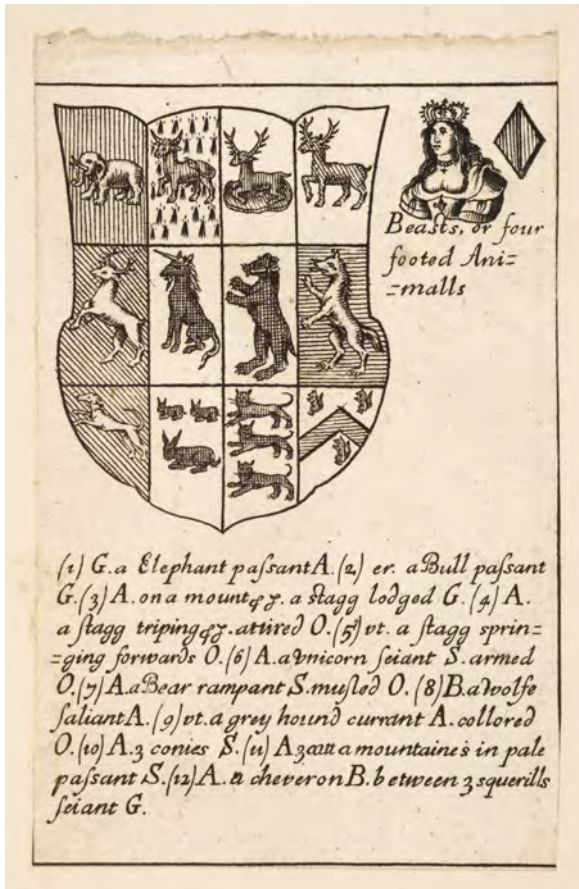 Beasts, or four
footed Ani=
=malls
(1) G. a Elephant paſsant A. (2) er. a Bull paſsant
G. (3) A. on a mount a ſtagg lodged G. (4) A.
a ſtagg triping attired O. (5) vt. a ſtagg sprin=
=ging forwards O. (6) A. a Vnicorn ſeiant S. armed
O. (7) A. a Bear rampant S. muſled O. (8) B. a Wolfe
ſaliant A. (9) vt. a grey hound currant A. collored
O. (10) A. 3 conies S. (11) A 3 a mountaines in pale
paſsant S. (12) A. a cheveron B. between 3 squerills
ſeiant G.